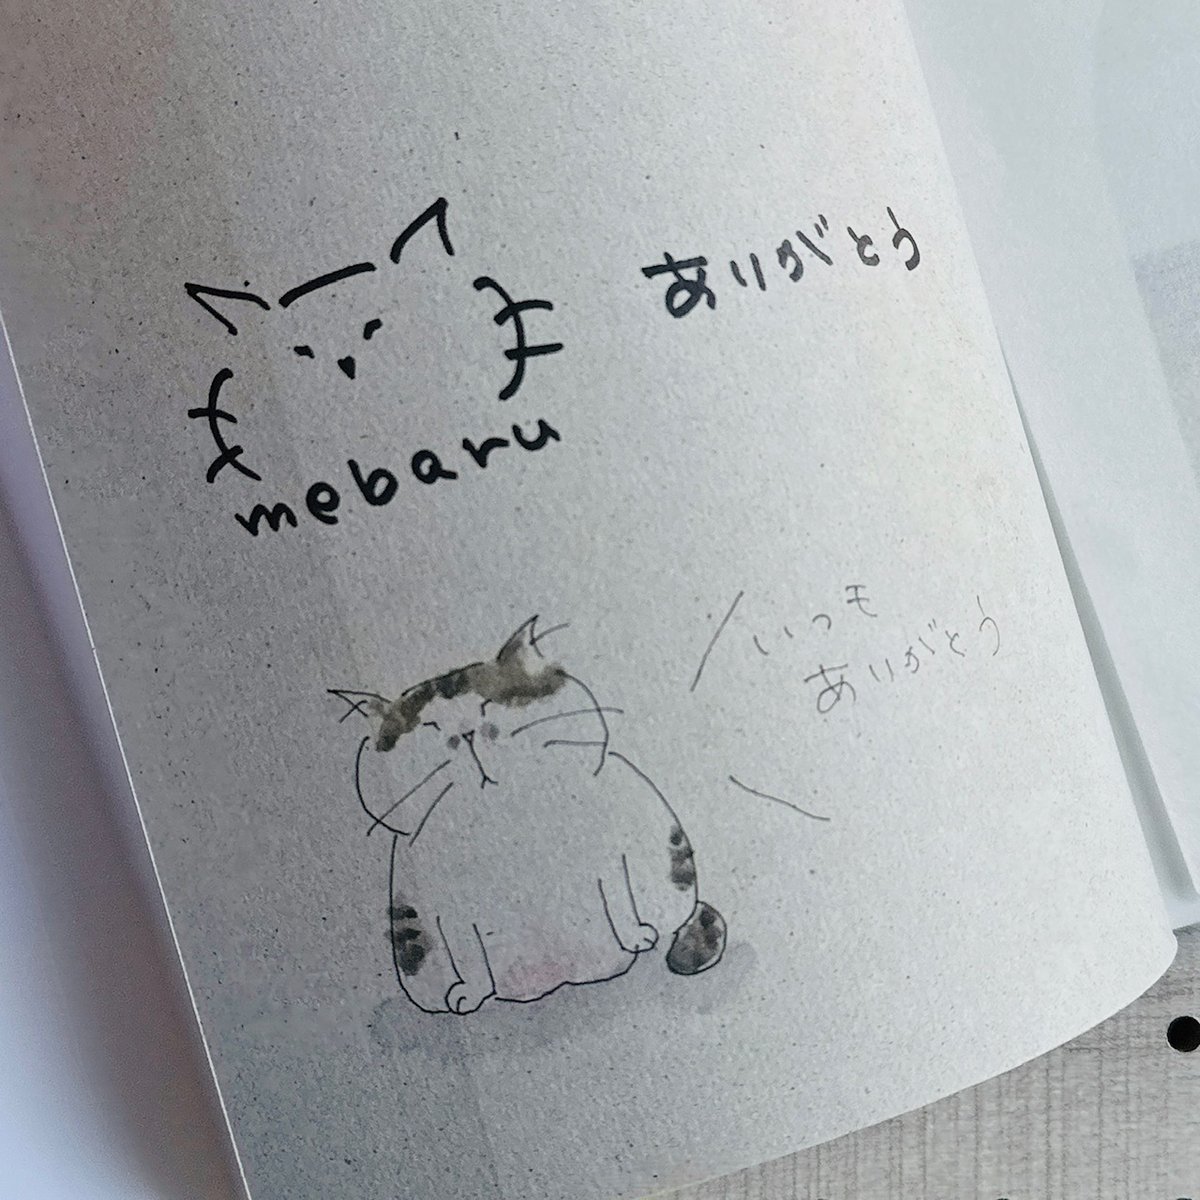 ありがとう
mebaru
いつも
ありがとう